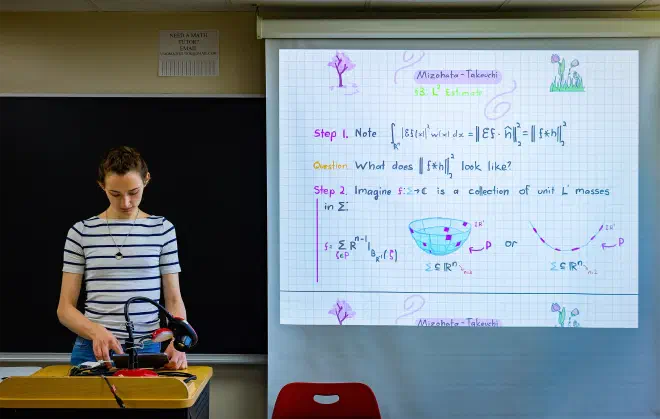 NEED A MATH
TUTOR?
EMAIL
Mizohata-Takeuchi
L² Estimate
Step 1. Note ∫ |Ef(x)|² w(x) dx = ‖Ef · ĥ‖₂² = ‖f*h‖₂²
Question. What does ‖f*h‖₂² look like?
Step 2. Imagine f: Σ→ℂ is a collection of unit L¹ masses
in Σ.
f = Σ R^{n-1} 1
ξ∈P
P or P
Σ ⊆ ℝⁿ Σ ⊆ ℝⁿ
Mizohata-Takeuchi